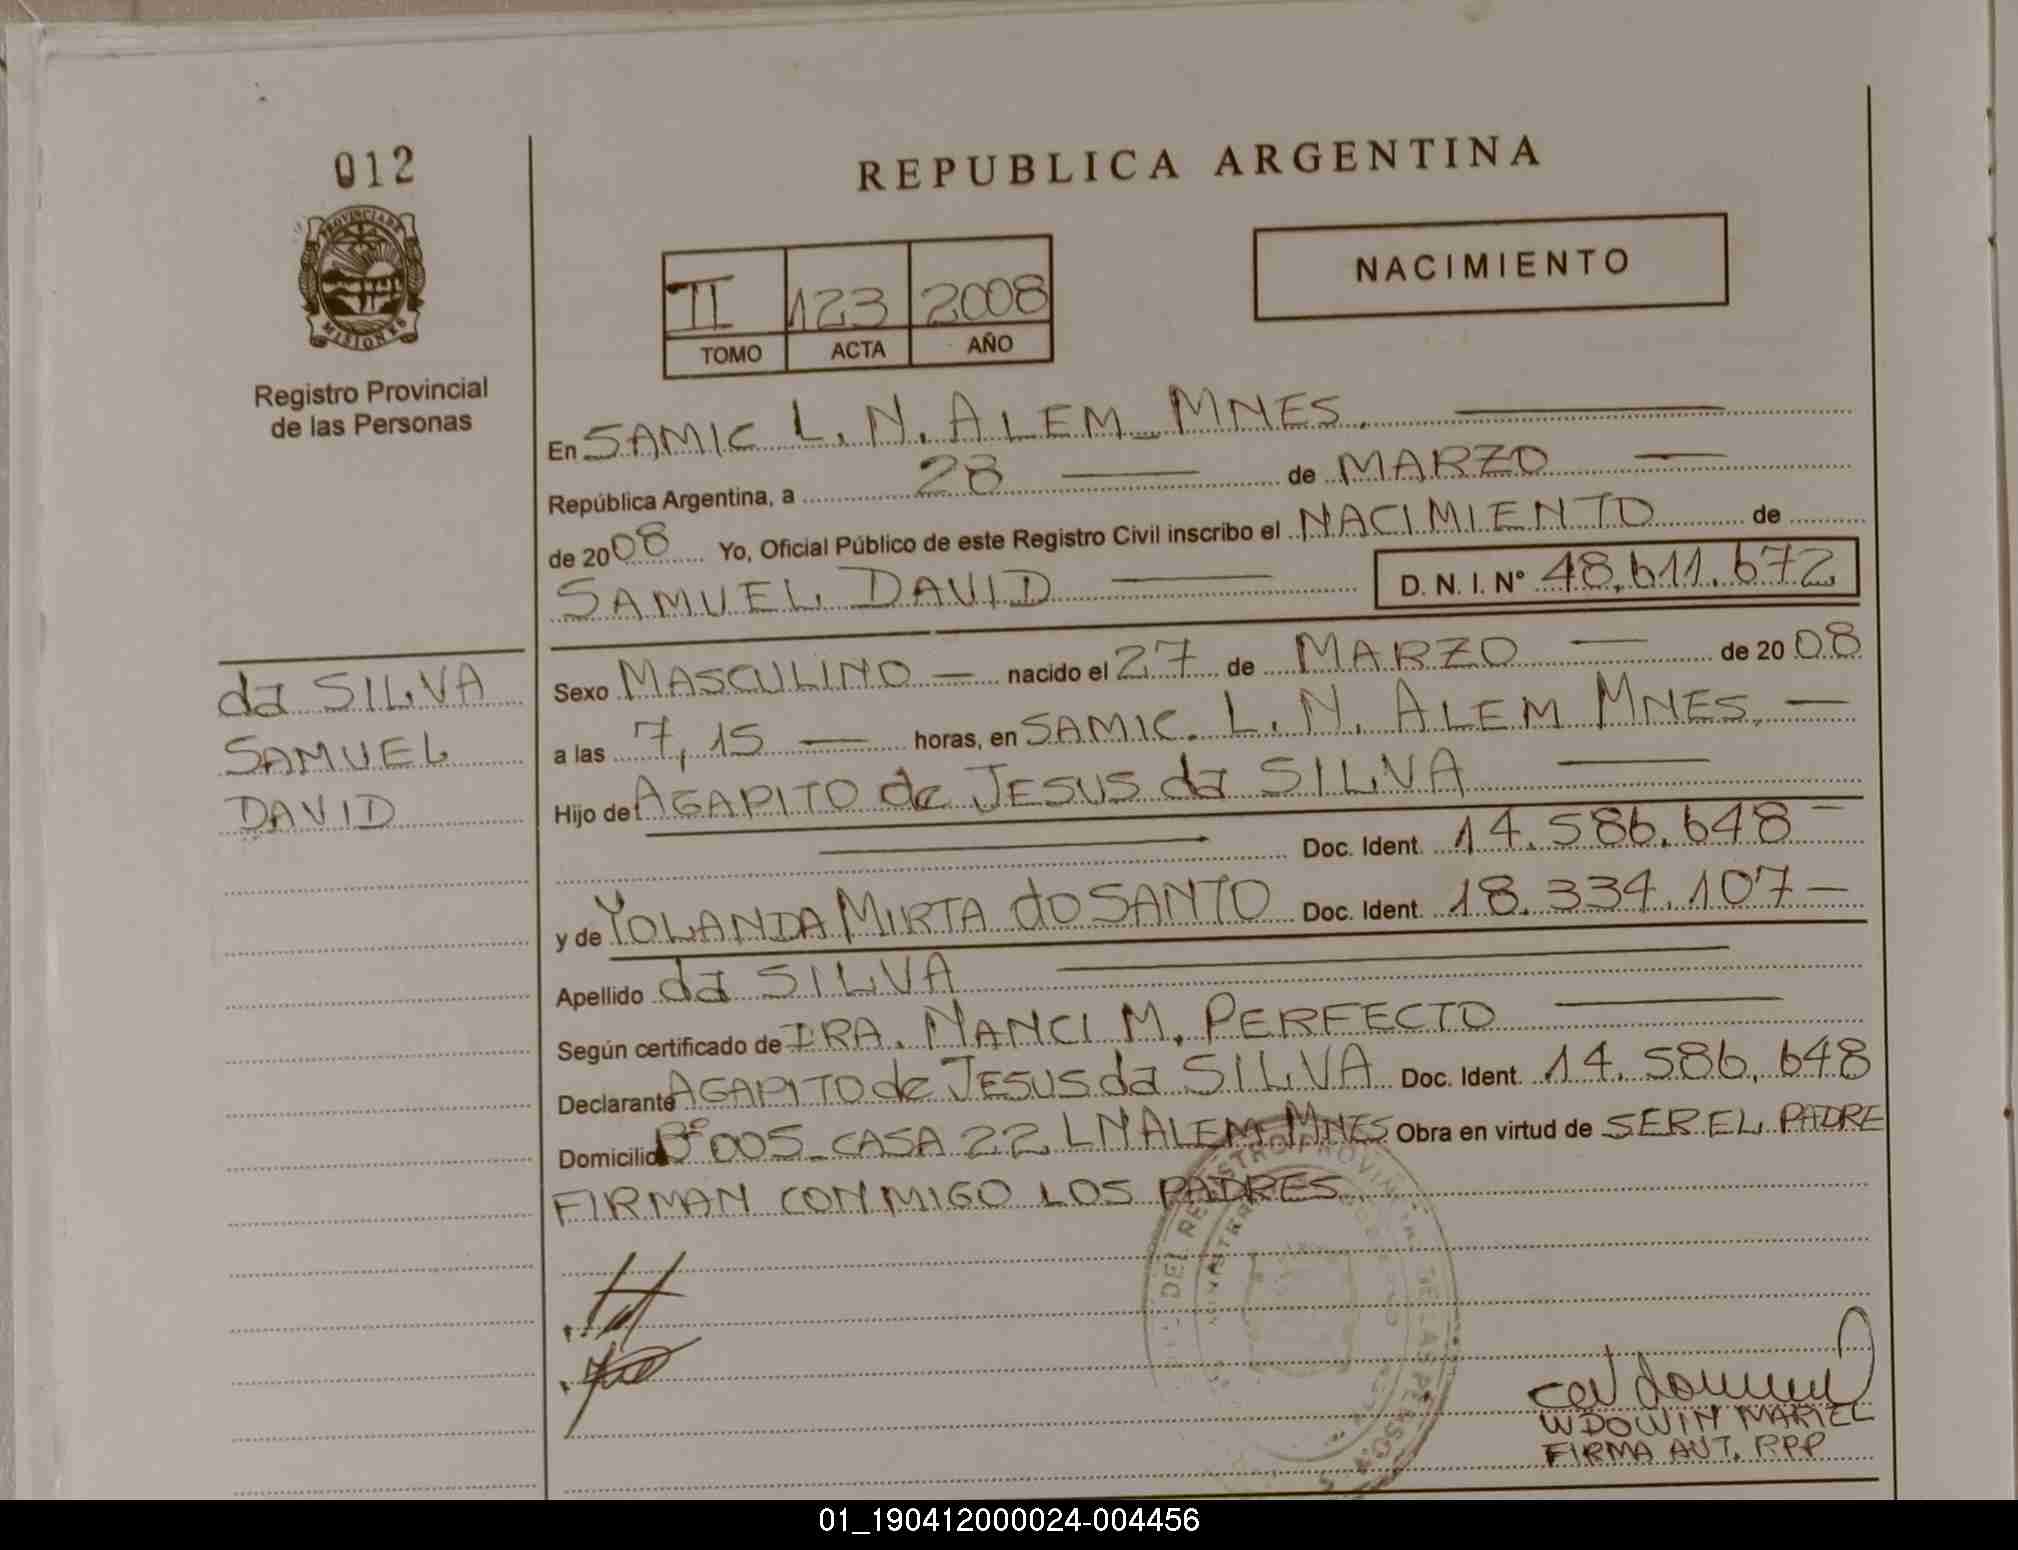 012
PROVINCIA DE
MISIONES
Registro Provincial
de las Personas
da SILVA
SAMUEL
DAVID
REPUBLICA ARGENTINA
II 123 2008
TOMO ACTA AÑO
NACIMIENTO
En SAMIC L. N. ALEM MNES.
República Argentina, a 28 de MARZO
de 2008 Yo, Oficial Público de este Registro Civil inscribo el NACIMIENTO de
SAMUEL DAVID D. N. I. Nº 48.611.672
Sexo MASCULINO nacido el 27 de MARZO de 2008
a las 7,15 horas, en SAMIC. L. N. ALEM MNES.
Hijo de AGAPITO de JESUS da SILVA
Doc. Ident. 14.586.648
y de YOLANDA MIRTA do SANTO Doc. Ident. 18.334.107
Apellido da SILVA
Según certificado de DRA. NANCI M. PERFECTO
Declarante AGAPITO de JESUS da SILVA Doc. Ident. 14.586.648
Domicilio Bº DOS CASA 22 LN ALEM MNES Obra en virtud de SER EL PADRE
FIRMAN CONMIGO LOS PADRES
DEL REGISTRO PROVIN DE LAS PERSONAS
WDOWIN MARIEL
FIRMA AUT. RPP
01_190412000024-004456